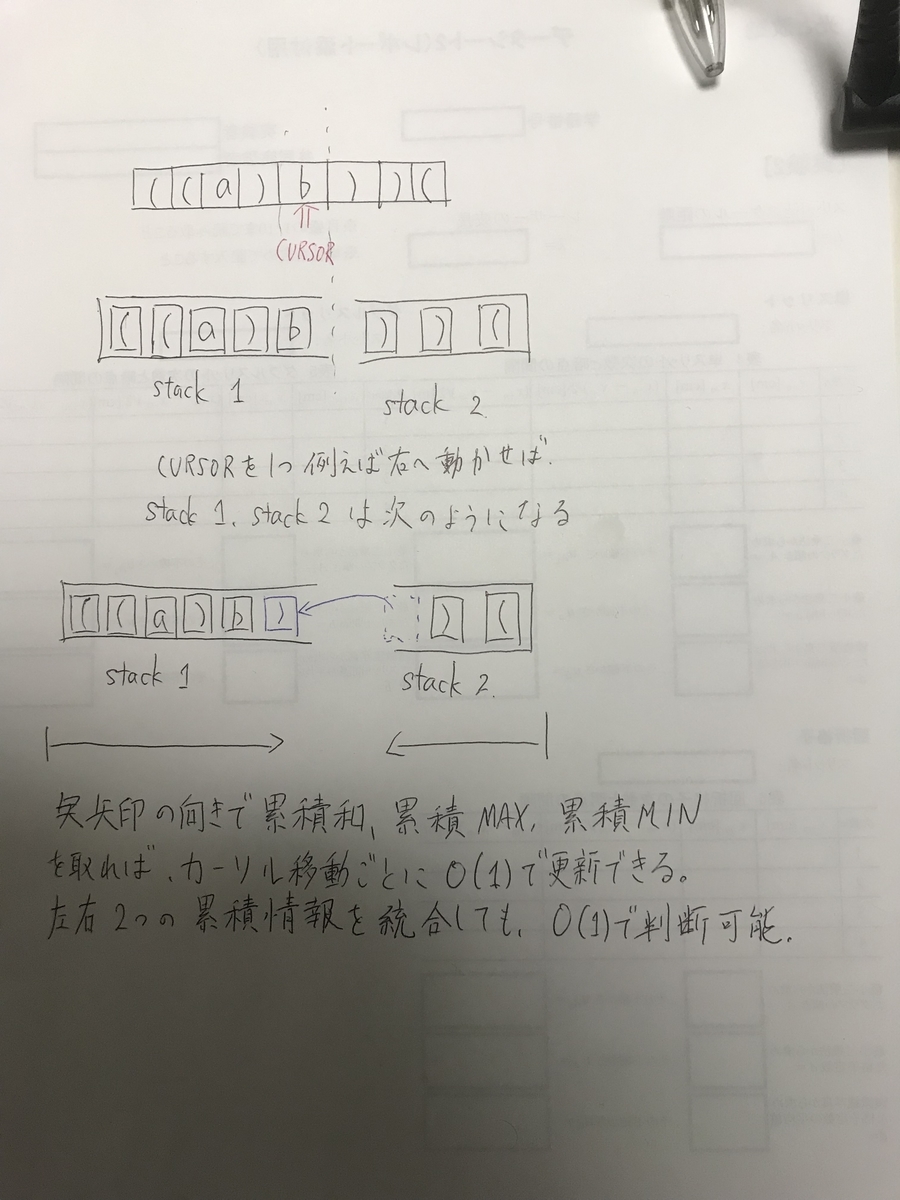 ( ( a ) b ) ) (
CURSOR
( ( a ) b
) ) (
stack 1
stack 2.
CURSORを1つ例えば右へ動かせば、
stack 1、stack 2 は次のようになる
( ( a ) b )
) (
stack 1
stack 2.
矢印の向きで累積和、累積MAX、累積MIN
を取れば、カーソル移動ごとに O(1)で更新できる。
左右2つの累積情報を統合しても、O(1)で判断可能.